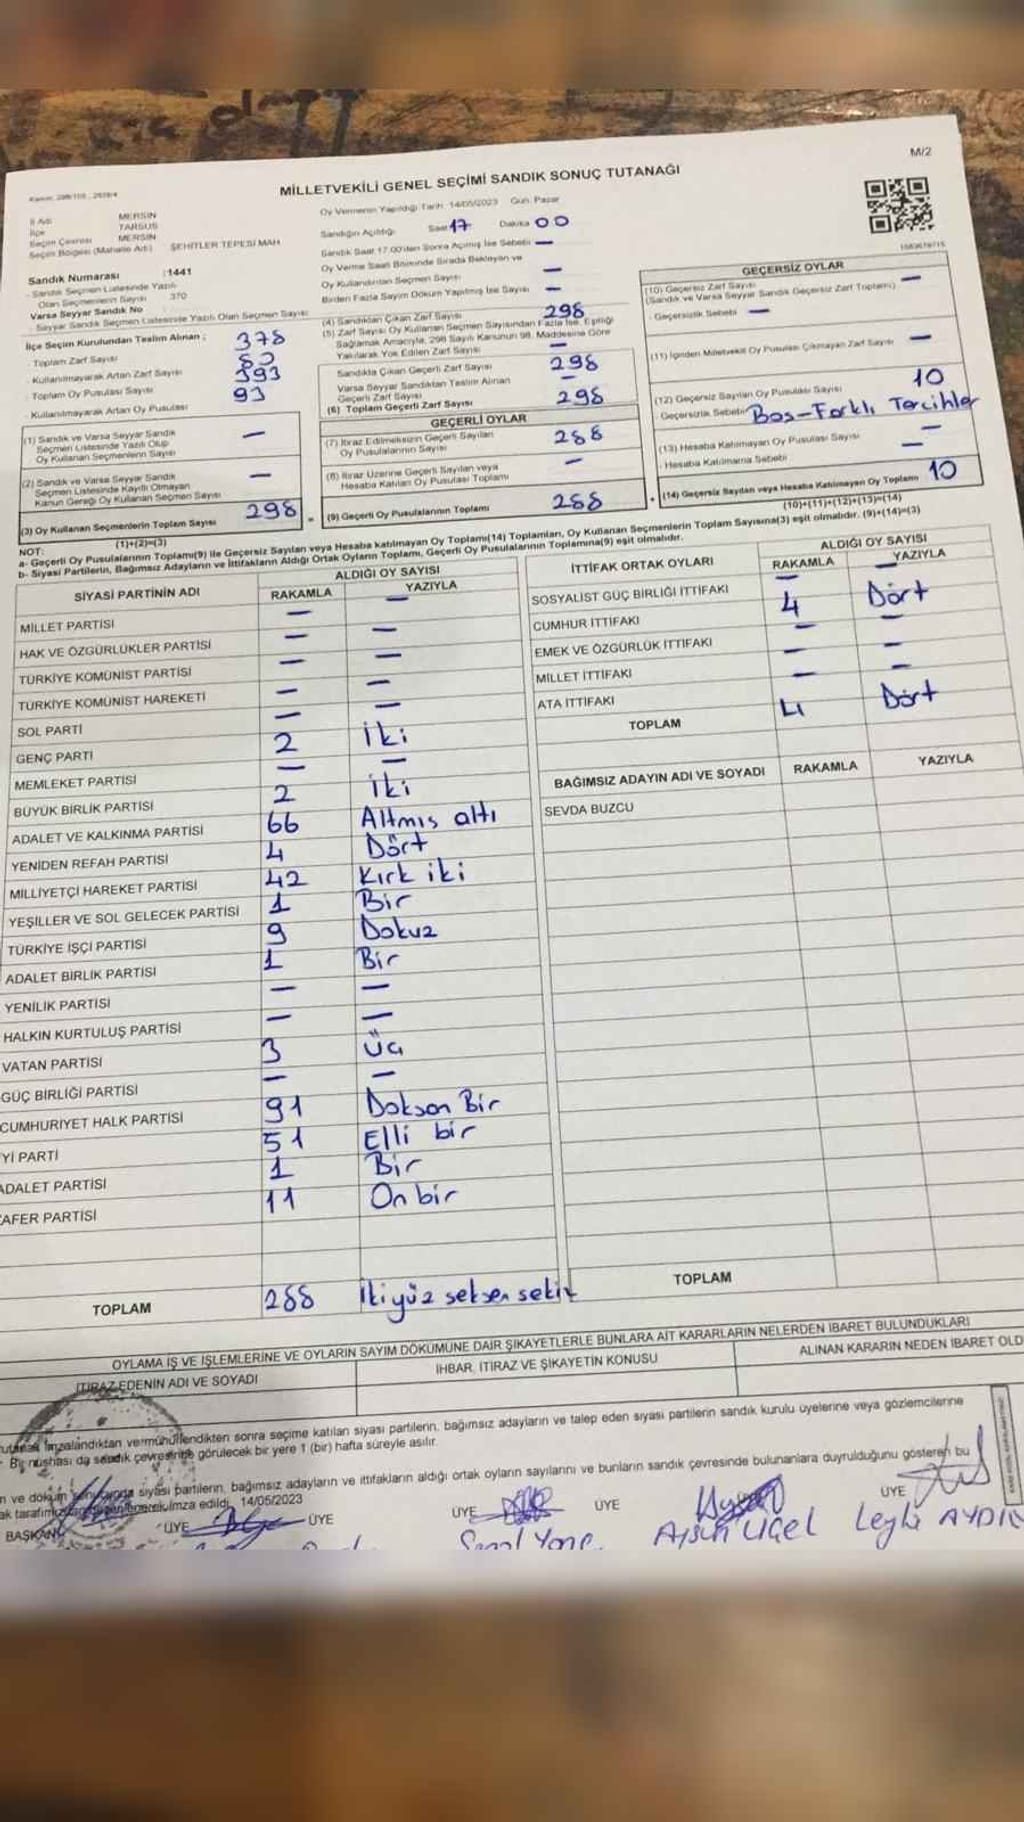 M/2
MİLLETVEKİLİ GENEL SEÇİMİ SANDIK SONUÇ TUTANAĞI
İl Adı MERSİN
İlçe TARSUS
Seçim Çevresi MERSİN
Seçim Bölgesi (Mahalle Adı) ŞEHİTLER TEPESİ MAH
Sandık Numarası : 1441
Sandık Seçmen Listesinde Yazılı
Olan Seçmenlerin Sayısı 370
Varsa Seyyar Sandık No
Seyyar Sandık Seçmen Listesinde Yazılı Olan Seçmen Sayısı
İlçe Seçim Kurulundan Teslim Alınan ;
Toplam Zarf Sayısı 378
Kullanılmayarak Artan Zarf Sayısı
Toplam Oy Pusulası Sayısı 393
Kullanılmayarak Artan Oy Pusulası 93
(1) Sandık ve Varsa Seyyar Sandık
Seçmen Listesinde Yazılı Olup
Oy Kullanan Seçmenlerin Sayısı —
(2) Sandık ve Varsa Seyyar Sandık
Seçmen Listesinde Kayıtlı Olmayan
Kanun Gereği Oy Kullanan Seçmen Sayısı —
(3) Oy Kullanan Seçmenlerin Toplam Sayısı 298
(1)+(2)=(3)
Oy Vermenin Yapıldığı Tarih: 14/05/2023 Gün: Pazar
Sandığın Açıldığı Saat 17 Dakika 00
Sandık Saat 17.00'den Sonra Açılmış İse Sebebi —
Oy Verme Saati Bitiminde Sırada Bekleyen ve
Oy Kullandırılan Seçmen Sayısı —
Birden Fazla Sayım Döküm Yapılmış İse Sayısı —
(4) Sandıktan Çıkan Zarf Sayısı 298
(5) Zarf Sayısı Oy Kullanan Seçmen Sayısından Fazla İse, Eşitliği
Sağlamak Amacıyla, 298 Sayılı Kanunun 98. Maddesine Göre
Yakılarak Yok Edilen Zarf Sayısı —
Sandıkta Çıkan Geçerli Zarf Sayısı 298
Varsa Seyyar Sandıktan Teslim Alınan
Geçerli Zarf Sayısı —
(6) Toplam Geçerli Zarf Sayısı 298
GEÇERLİ OYLAR
(7) İtiraz Edilmeksizin Geçerli Sayılan
Oy Pusulalarının Sayısı 288
(8) İtiraz Üzerine Geçerli Sayılan veya
Hesaba Katılan Oy Pusulası Toplamı —
(9) Geçerli Oy Pusulalarının Toplamı 288
GEÇERSİZ OYLAR
(10) Geçersiz Zarf Sayısı —
(Sandık ve Varsa Seyyar Sandık Geçersiz Zarf Toplamı)
Geçersizlik Sebebi —
(11) İçinden Milletvekili Oy Pusulası Çıkmayan Zarf Sayısı —
(12) Geçersiz Sayılan Oy Pusulası Sayısı 10
Geçersizlik Sebebi Boş-Farklı Tercihler
(13) Hesaba Katılmayan Oy Pusulası Sayısı —
Hesaba Katılmama Sebebi —
(14) Geçersiz Sayılan veya Hesaba Katılmayan Oy Toplamı 10
(10)+(11)+(12)+(13)=(14)
NOT:
a- Geçerli Oy Pusulalarının Toplamı(9) ile Geçersiz Sayılan veya Hesaba katılmayan Oy Toplamı(14) Toplamları, Oy Kullanan Seçmenlerin Toplam Sayısına(3) eşit olmalıdır. (9)+(14)=(3)
b- Siyasi Partilerin, Bağımsız Adayların ve İttifakların Aldığı Ortak Oyların Toplamı, Geçerli Oy Pusulalarının Toplamına(9) eşit olmalıdır.
SİYASİ PARTİNİN ADI ALDIĞI OY SAYISI
RAKAMLA YAZIYLA
MİLLET PARTİSİ — —
HAK VE ÖZGÜRLÜKLER PARTİSİ — —
TÜRKİYE KOMÜNİST PARTİSİ — —
TÜRKİYE KOMÜNİST HAREKETİ — —
SOL PARTİ — —
GENÇ PARTİ 2 İki
MEMLEKET PARTİSİ — —
BÜYÜK BİRLİK PARTİSİ 2 İki
ADALET VE KALKINMA PARTİSİ 66 Altmış altı
YENİDEN REFAH PARTİSİ 4 Dört
MİLLİYETÇİ HAREKET PARTİSİ 42 Kırk iki
YEŞİLLER VE SOL GELECEK PARTİSİ 1 Bir
TÜRKİYE İŞÇİ PARTİSİ 9 Dokuz
ADALET BİRLİK PARTİSİ 1 Bir
YENİLİK PARTİSİ — —
HALKIN KURTULUŞ PARTİSİ — —
VATAN PARTİSİ 3 Üç
GÜÇ BİRLİĞİ PARTİSİ — —
CUMHURİYET HALK PARTİSİ 91 Doksan Bir
Yİ PARTİ 51 Elli bir
ADALET PARTİSİ 1 Bir
AFER PARTİSİ 11 On bir
TOPLAM 288 İkiyüz seksen sekiz
İTTİFAK ORTAK OYLARI ALDIĞI OY SAYISI
RAKAMLA YAZIYLA
SOSYALİST GÜÇ BİRLİĞİ İTTİFAKI — —
CUMHUR İTTİFAKI 4 Dört
EMEK VE ÖZGÜRLÜK İTTİFAKI — —
MİLLET İTTİFAKI — —
ATA İTTİFAKI — —
TOPLAM 4 Dört
BAĞIMSIZ ADAYIN ADI VE SOYADI RAKAMLA YAZIYLA
SEVDA BUZCU
TOPLAM
OYLAMA İŞ VE İŞLEMLERİNE VE OYLARIN SAYIM DÖKÜMÜNE DAİR ŞİKAYETLERLE BUNLARA AİT KARARLARIN NELERDEN İBARET BULUNDUKLARI
İTİRAZ EDENİN ADI VE SOYADI İHBAR, İTİRAZ VE ŞİKAYETİN KONUSU ALINAN KARARIN NEDEN İBARET OLD
imzalandıktan ve mühürlendikten sonra seçime katılan siyasi partilerin, bağımsız adayların ve talep eden siyasi partilerin sandık kurulu üyelerine veya gözlemcilerine
Bir nüshası da sandık çevresinde görülecek bir yere 1 (bir) hafta süreyle asılır.
n ve döküm sonucunda siyasi partilerin, bağımsız adayların ve ittifakların aldığı ortak oyların sayılarını ve bunların sandık çevresinde bulunanlara duyrulduğunu gösteren bu
ak tarafımızdan imza edildi. 14/05/2023
BAŞKAN ÜYE ÜYE ÜYE ÜYE ÜYE
Aysun UÇEL Leyla AYDIN